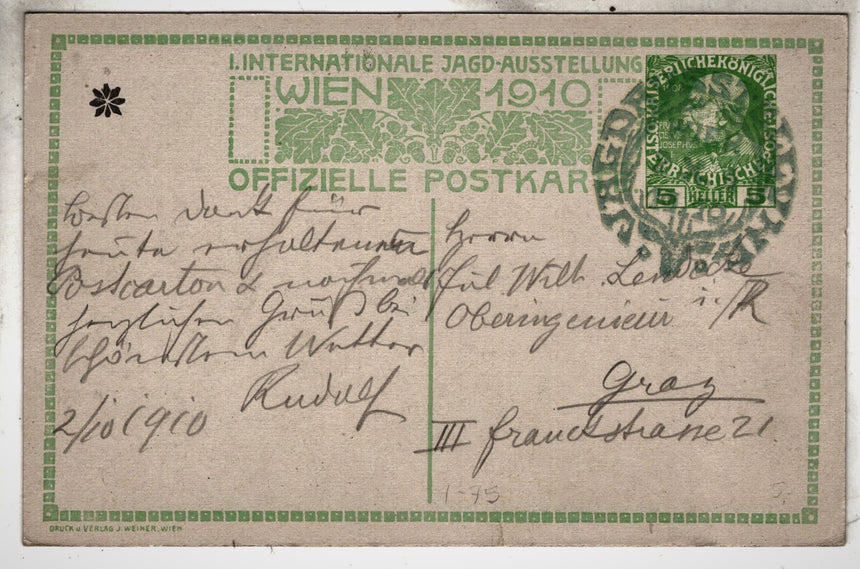 I. INTERNATIONALE JAGD-AUSSTELLUNG
WIEN 1910
OFFIZIELLE POSTKAR
5 HELLER 5
Besten Dank für
heute erhaltenen
Postcarton & nochmals
herzlichen Gruß bei
schönstem Wetter
Rudolf
2/10 1910
Herrn
Jul. Wilh.
Oberingenieur i./R
Graz
III Franckstrasse 21.
1-75
DRUCK u. VERLAG J. WEINER, WIEN